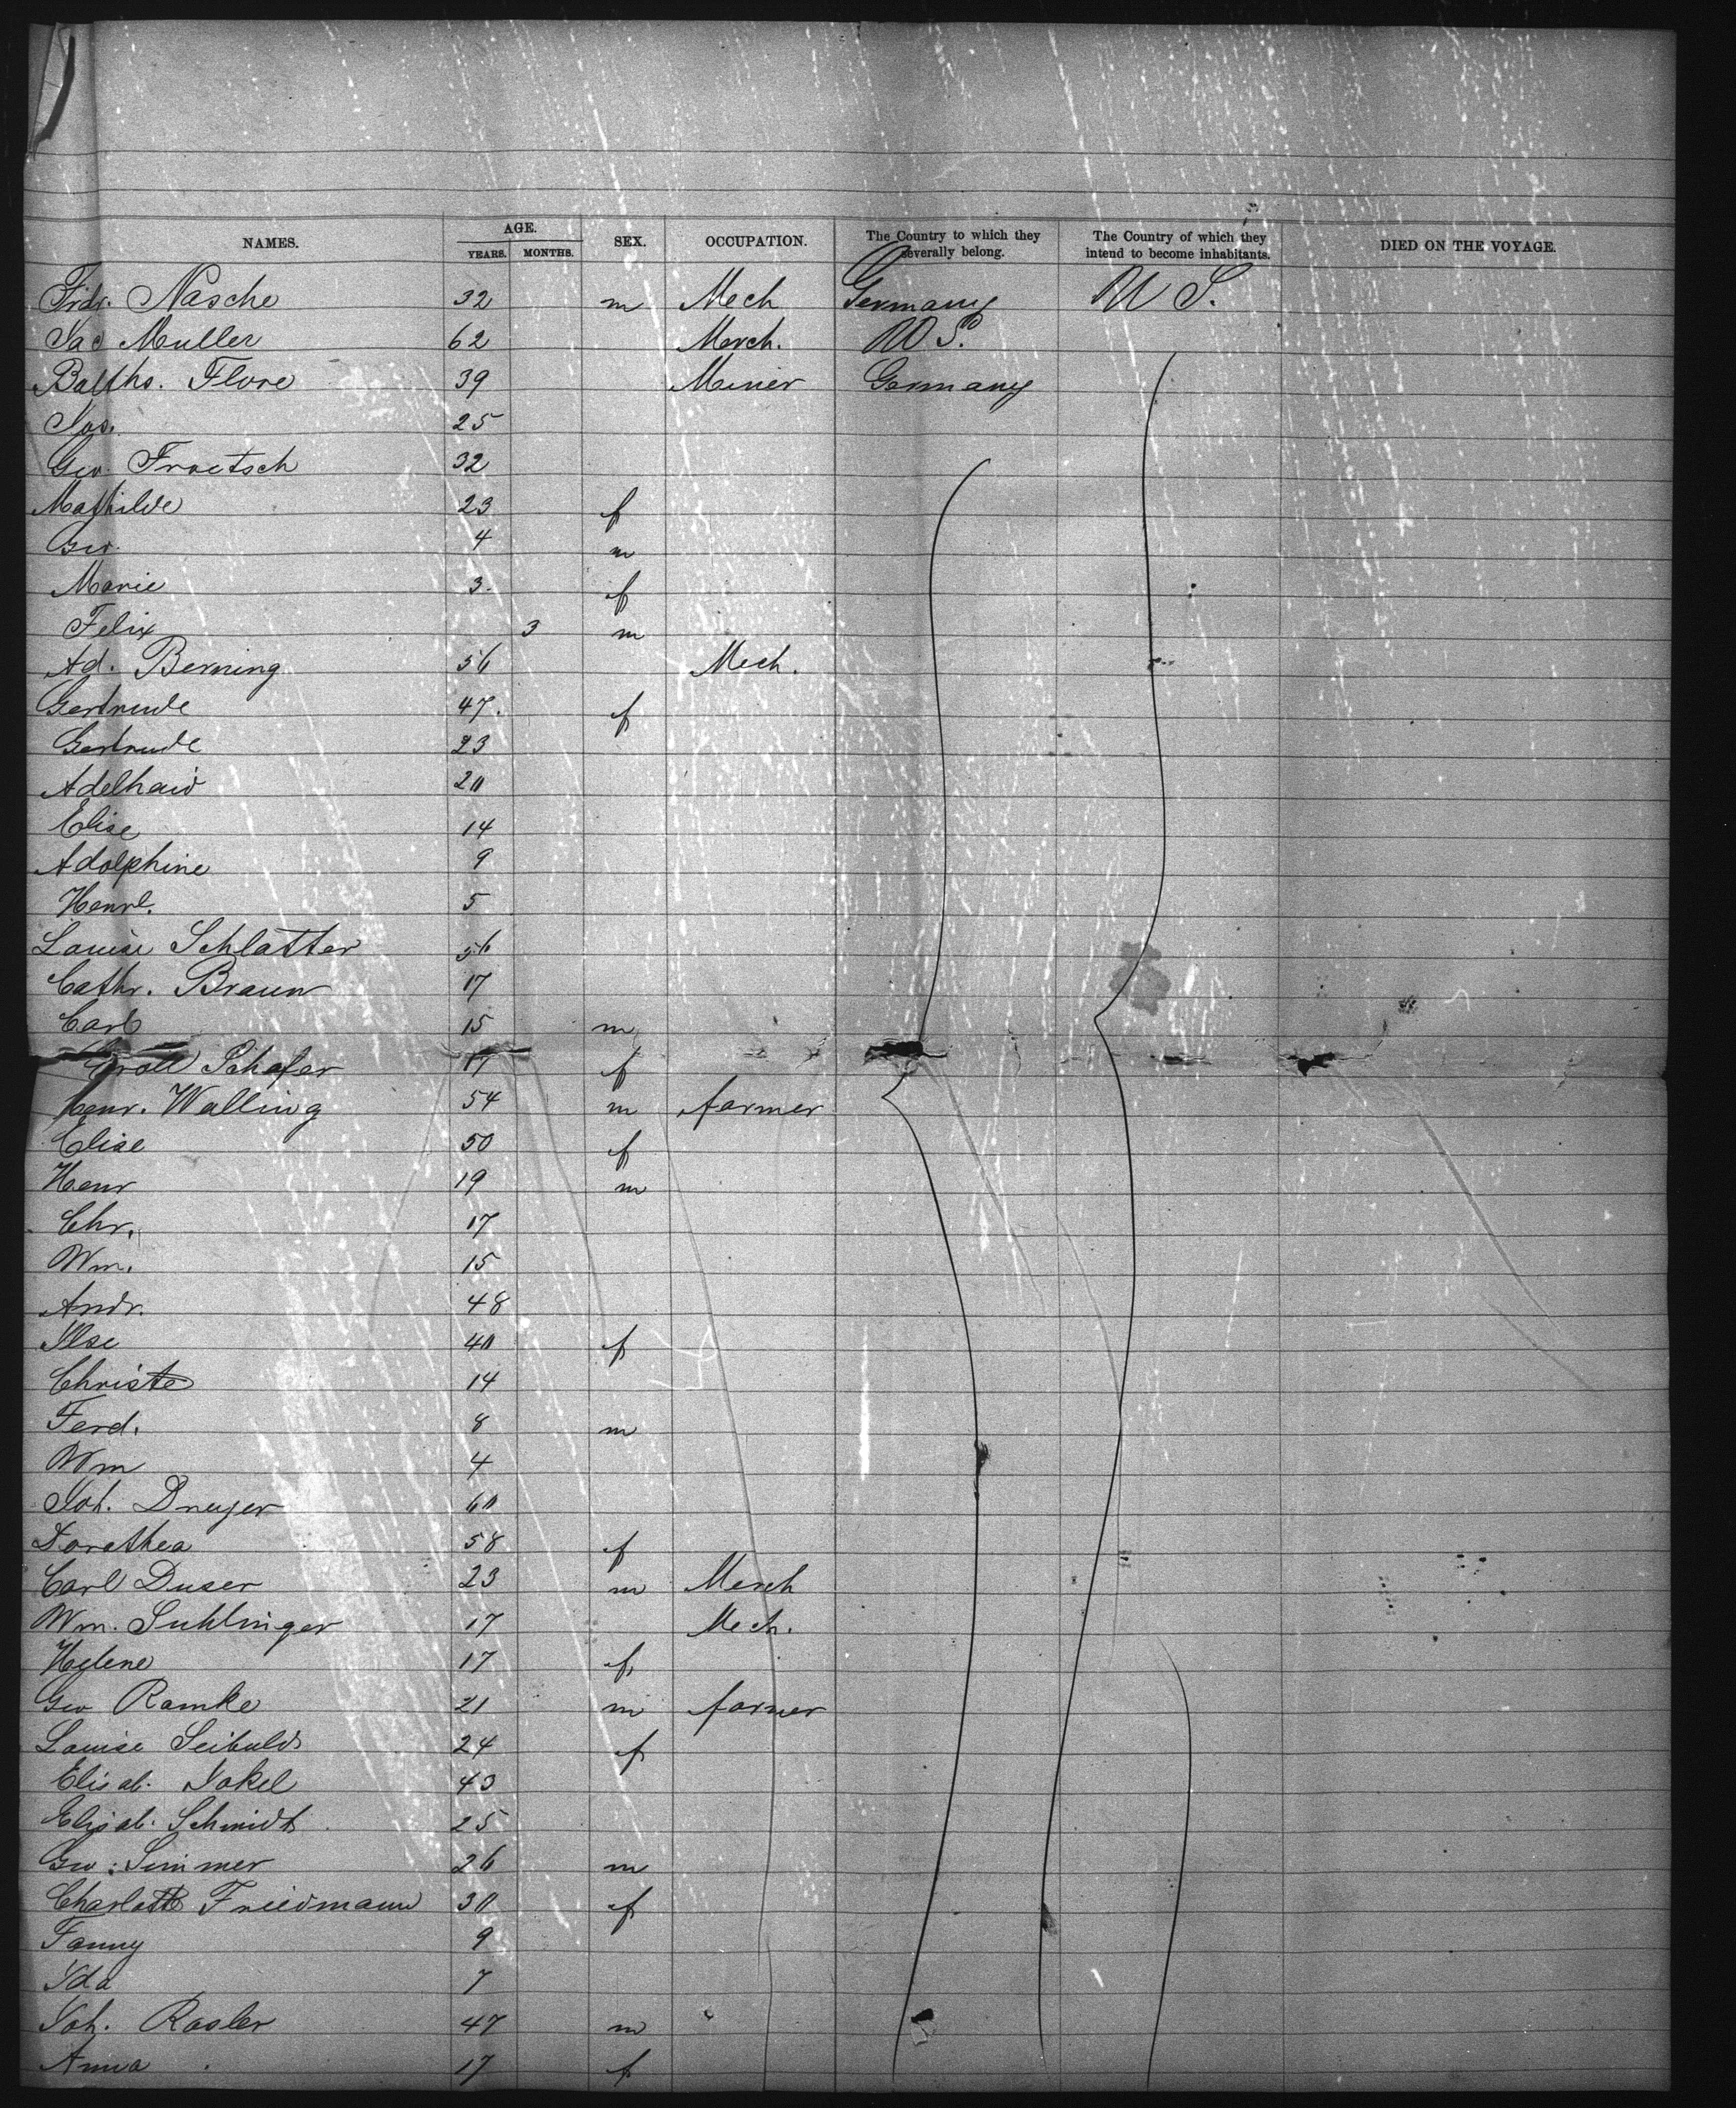 NAMES. AGE. YEARS. MONTHS. SEX. OCCUPATION. The Country to which they severally belong. The Country of which they intend to become inhabitants. DIED ON THE VOYAGE.
Frdr. Nasche 32 m Mech Germany U S.
Jac Muller 62 Merch. U S.
Balths. Flore 39 Miner Germany
Jos. 25
Geo. Troetsch 32
Mathilde 23 f
Geo. 4 m
Marie 3. f
Felix 3 m
Ad. Berning 56 Mech.
Gertrude 47. f
Gertrude 23
Adelhaid 20
Elise 14
Adolphine 9
Henrl. 5
Louise Schlatter 56
Cathr. Braun 17
Carl 15 m
Schafer 17 f
Henr. Walling 54 m farmer
Elise 50 f
Henr 19 m
Chr. 17
Wm. 15
Andr. 48
Ilse 40 f
Christe 14
Ferd. 8 m
Wm 4
Joh. Dreyer 60
Dorathea 58 f
Carl Duser 23 m Merch
Wm. Suhlinger 17 Mech.
Helene 17 f
Geo Ramke 21 m farmer
Louise Seibold 24 f
Elisab. Jokel 43
Elisab. Schmidt 25
Geo: Simmer 26 m
Charlotte Friedmann 30 f
Fanny 9
Ida 7
Joh. Rosler 47 m
Anna 17 f